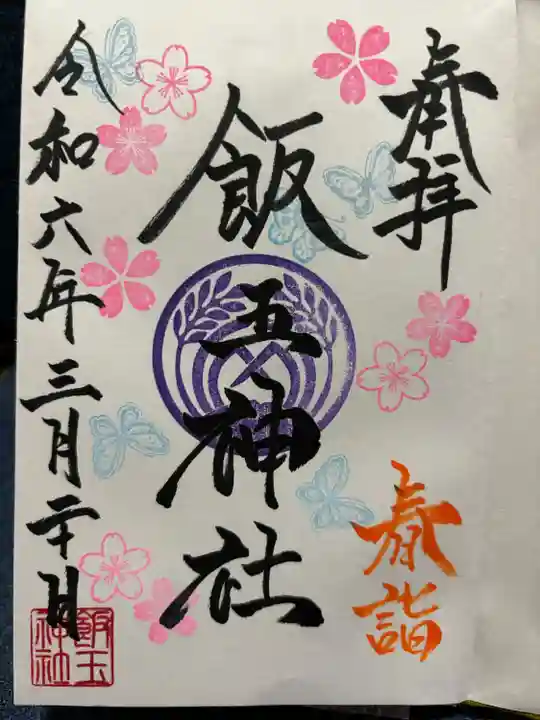 奉拝
春詣
飯玉神社
令和六年三月二十日
飯玉
神社